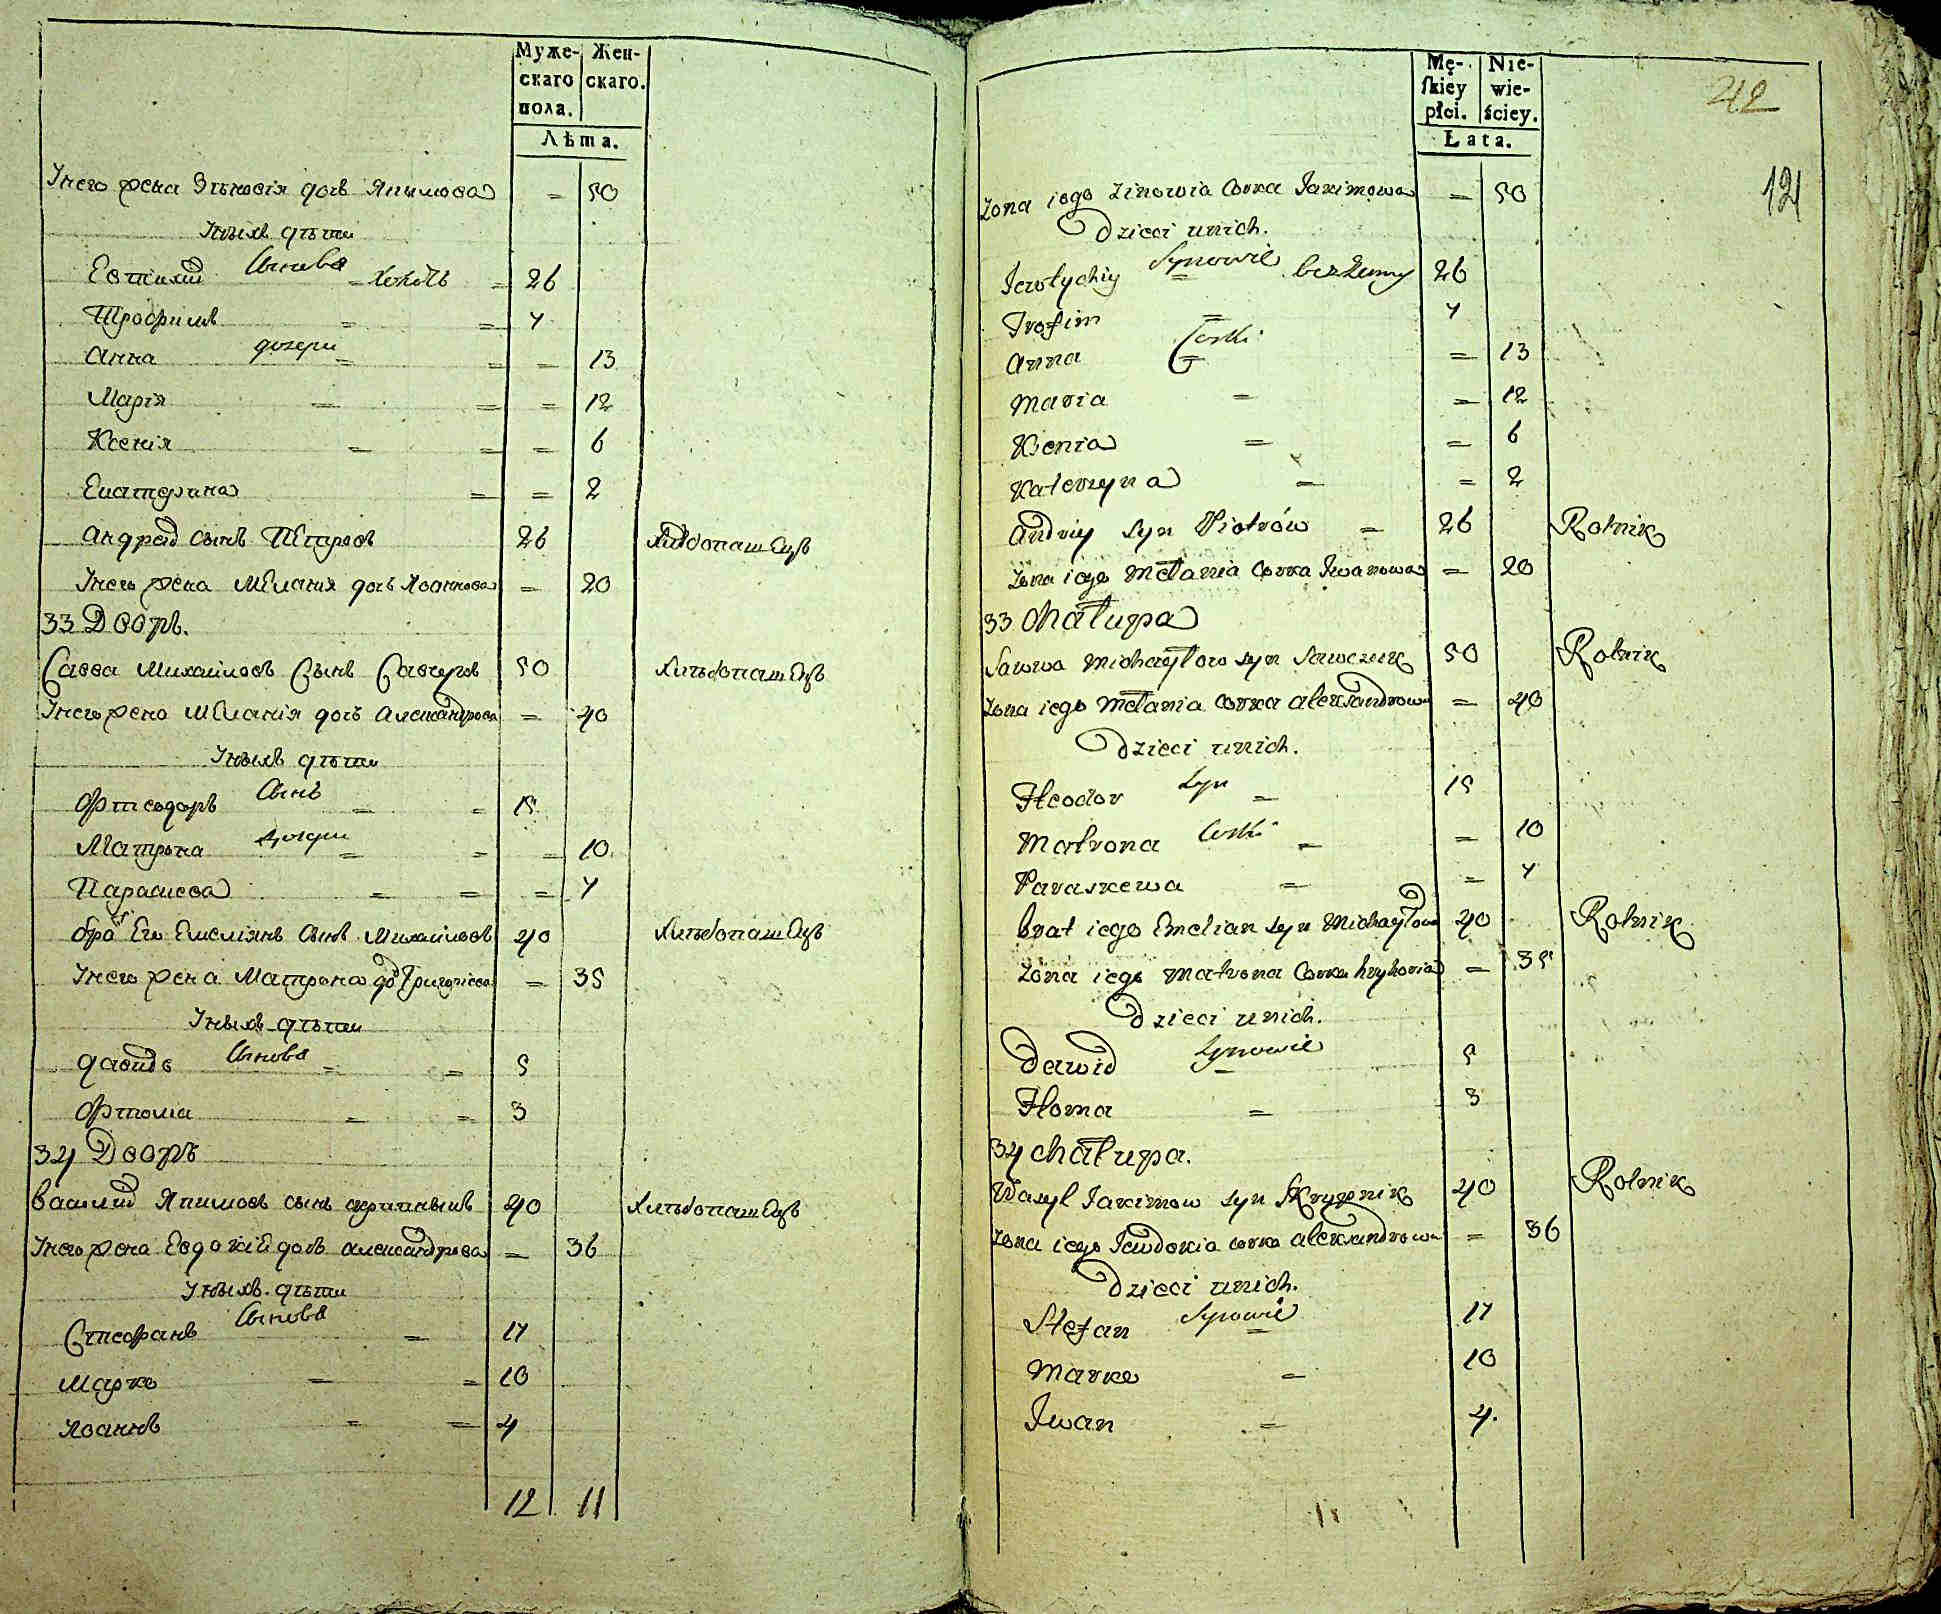 Муже-
скаго
пола.
Жен-
скаго.
Лѣта.
Унего жена Зѣновія дочь Якимова = 50
Унихъ дѣти
Евтихій Сынове = холостъ = 26
Трофимъ = = 7
Анна дочери = = = 13
Марія = = = 12
Ксенія = = = 6
Екатерина = = 2
Андрей сынъ Петровъ 26 Хлѣбопашецъ
Унего жена Меланія дочь Иоаннова = 20
33 Дворъ.
Савва Михаиловъ Сынъ Савчукъ 50 Хлѣбопашецъ
Унего жена Меланія дочь Александрова = 40
Унихъ дѣти
Фтеодоръ Сынъ = = 15
Матрона дочери = = = 10.
Параскева = = = 7
братъ Его Емеліянъ Сынъ Михаиловъ 40 Хлѣбопашецъ
Унего жена Матрона до Григоріева = 35
Унихъ дѣти
Давидъ Сынове = = 5
Фтома = = 3
34 Дворъ
Василій Якимовъ сынъ скрипникъ 40 Хлѣбопашецъ
Унего жена Евдокія дочь Александрова = 36
Унихъ дѣти
Стефанъ Сынове = 17
Марко = = 10
Иоаннъ = = 4
12 11
Mę-
skiey
płci.
Nie-
wie-
ściey.
Łata.
42
121
Zona iego Zinowia Corka Jakimowa = 50
Dzieci unich.
Jewtychiy Synowie = bezżenny 26
Trofim = 7
Anna Corki = = 13
Maria = = 12
Xienia = = 6
Katerzyna = = 2
Andriy syn Piotrów = 26 Rolnik
Zona iego Mełania Corka Iwanowa = 20
33 Chałupa
Sawwa Michayłow syn Sawczuk 50 Rolnik
Zona iego Mełania corka Alexandrowa = 40
Dzieci unich.
Fteodor Syn = 15
Matrona Corki = = 10
Paraskewa = = 7
brat iego Emelian syn Michayłow 40 Rolnik
Zona iego Matrona Corka hryhoria = 35
Dzieci unich.
Dawid Synowie = 5
Ftoma = 3
34 chałupa.
Wasyl Jakimow syn Skrypnik 40 Rolnik
Zona iego Jewdokia corka Alexandrowa = 36
Dzieci unich.
Stefan Synowie = 17
Marko = 10
Iwan = 4.